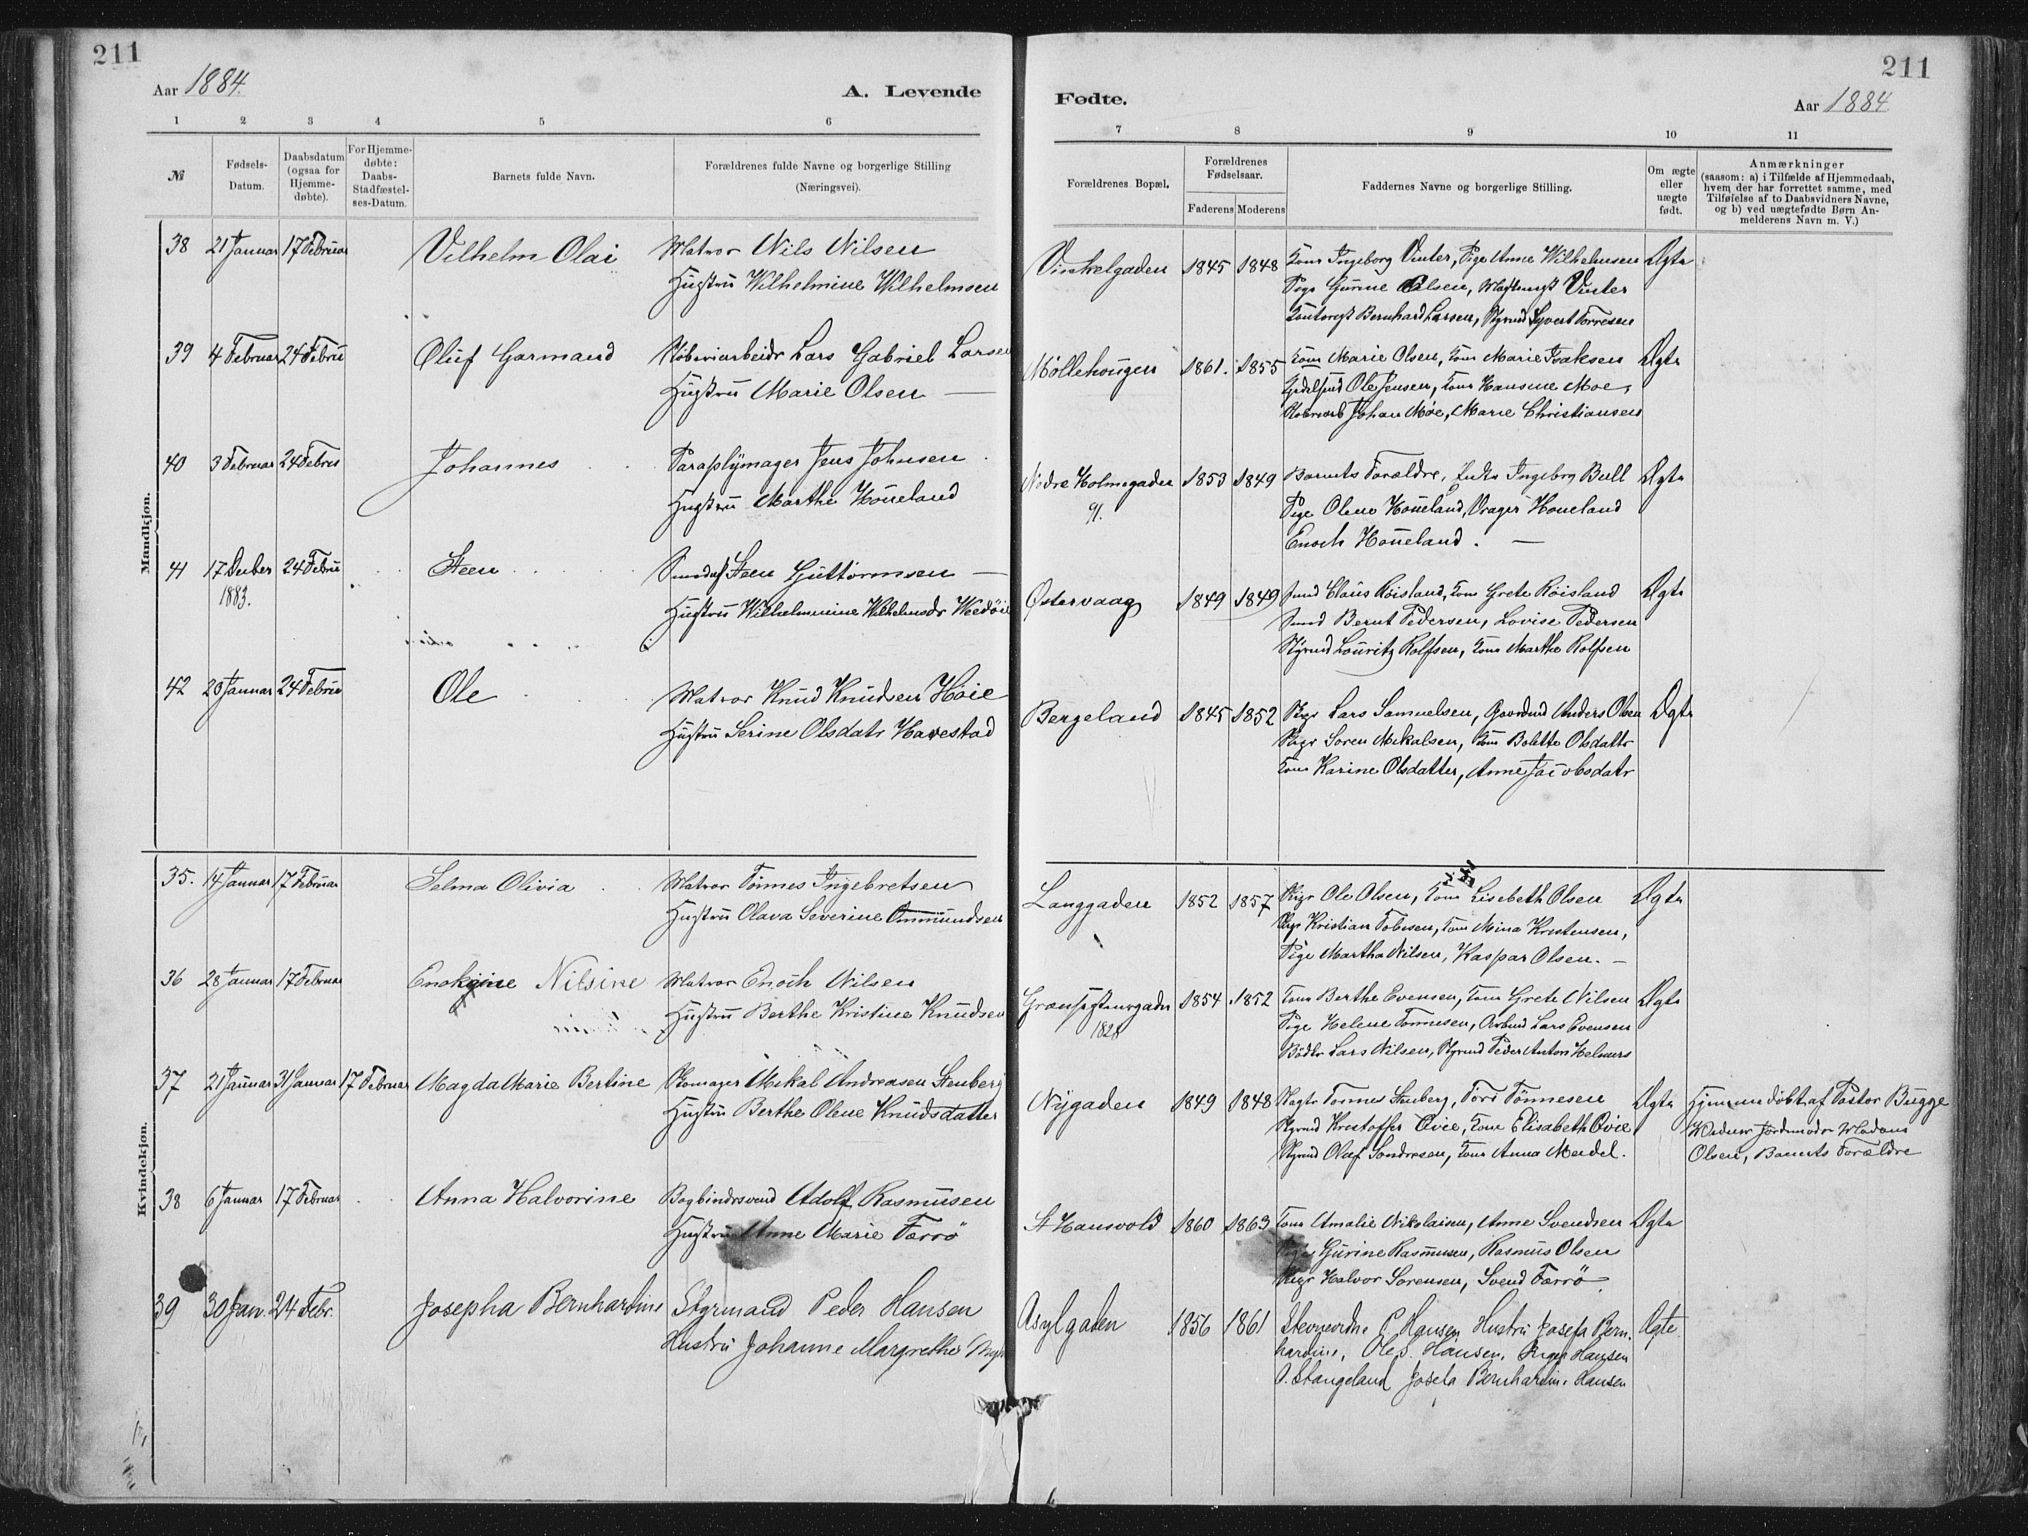 211
Aar 1884.
A. Levende
1 2 3 4 5 6
№
Fødsels-
Datum.
Daabsdatum
(ogsaa for
Hjemme-
døbte).
For Hjemme-
døbte:
Daabs-
Stadfæstel-
ses-Datum.
Barnets fulde Navn.
Forældrenes fulde Navne og borgerlige Stilling
(Næringsvei).
Mandkjøn.
38 21 Januar 17 Februar Vilhelm Olai Matros Nils Nilsen
Hustru Wilhelmine Wilhelmsen
39 4 Februar 24 Febru Oluf Garmand Lars Gabriel Larsen
Hustru Marie Olsen —
40 3 Februar 24 Febru Johannes Paraplymager Jens Johnsen
Hustru Marthe Houeland
41 17 Decber 24 Febru Steen Steen Guttormsen —
1883. Hustru Wilhelmine Wilhelmsdr
42 23 Januar 24 Febru Ole Matros Knud Knudsen Høie
Hustru Serine Olsdatr Havestad
Kvindekjøn.
35. 14 Januar 17 Februar Selma Olivia Matros Tønnes Ingebretsen
Hustru Olava Severine Ommundsen
36 28 Januar 17 Februar Enokine Nilsine Matros Enoch Nilsen
Hustru Berthe Kristine Knudsen
37 21 Januar 31 Januar 17 Februar Magda Marie Bertine Skomager Mikal Andreasen Stenberg
Hustru Berthe Olene Knudsdatter
38 6 Januar 17 Februar Anna Halvorine Bogbindersvend Adolf Rasmusen
Hustru Anne Marie Færrø
39 30 Jan. 24 Febr. Josepha Bernhardine Styrmand Peder Hansen
Hustru Johanne Margrethe
211
Fødte.
Aar 1884
7 8 9 10 11
Forældrenes Bopæl.
Forældrenes
Fødselsaar.
Faderens Moderens
Faddernes Navne og borgerlige Stilling.
Om ægte
eller
uægte
født.
Anmærkninger
(saasom: a) i Tilfælde af Hjemmedaab,
hvem der har forrettet samme, med
Tilføielse af to Daabsvidners Navne,
og b) ved uægtefødte Børn An-
melderens Navn m. V.)
Vinkelgaden 1845 1848 Kone Ingeborg Vinter, Pige Anne Wilhelmsen Ægte
Pige Gurine Olsen, Vinter
Bernhard Larsen, Styrmd Syvert Torresen
Møllehougen 1861. 1855 Kone Marie Olsen, Kone Marie Isaksen Ægte
Ole Jensen, Kone Hansine Moe,
Johan Moe, Marie Christiansen
Nedre Holmegaden 1853 1849 Barnets Forældre, Enke Ingeborg Bull Ægte
91. Pige Olene Houeland, Vrager Houeland
Enoch Houeland. —
Østervaag 1849 1849 Smed Claus Røisland, Kone Grete Røisland Ægte
Smed Bernt Pedersen, Lovise Pedersen
Styrmd Louritz Rolfsen, Kone Marthe Rolfsen
Bergeland 1845 1852 Lars Samuelsen, Anders Olsen Ægte
Soren Mikalsen, Kone Bolette Olsdattr
Kone Karine Olsdatter, Anne Jacobsdatr
Langgaden 1852 1857 Ole Olsen, Kone Lisebeth Olsen Ægte
Kristian Tobisen, Kone Mina Kristensen,
Pige Martha Nilsen, Kaspar Olsen. —
1854 1852 Kone Berthe Evensen, Kone Grete Nilsen Ægte
Pige Helene Tonnesen, Lars Evensen
Bødkr Lars Nilsen, Styrmd Peder Anton Helmers
Nygaden 1849 1848 Tonnes Stenberg, Tønnesen Ægte Hjemmedøbt af Pastor Bugge
Styrmd Kristoffer Øvie, Kone Elisabeth Øvie, Jordemoder Madam
Styrmd Olaf Sondresen, Kone Anna Meidel. Olsen, Barnets Forældre
St Hansvold 1860 1863 Kone Amalie Nikolaisen, Anne Svendsen Ægte
Pige Gurine Rasmusen, Rasmus Olsen
Halvor Sorensen, Svend Færrø.
Asylgaden 1856 1861 P. Hansen Hustru Josefa Bern- Ægte
hardine, Ole S. Hansen, Hansen
O. Stangeland Josefa Bernhardine Hansen